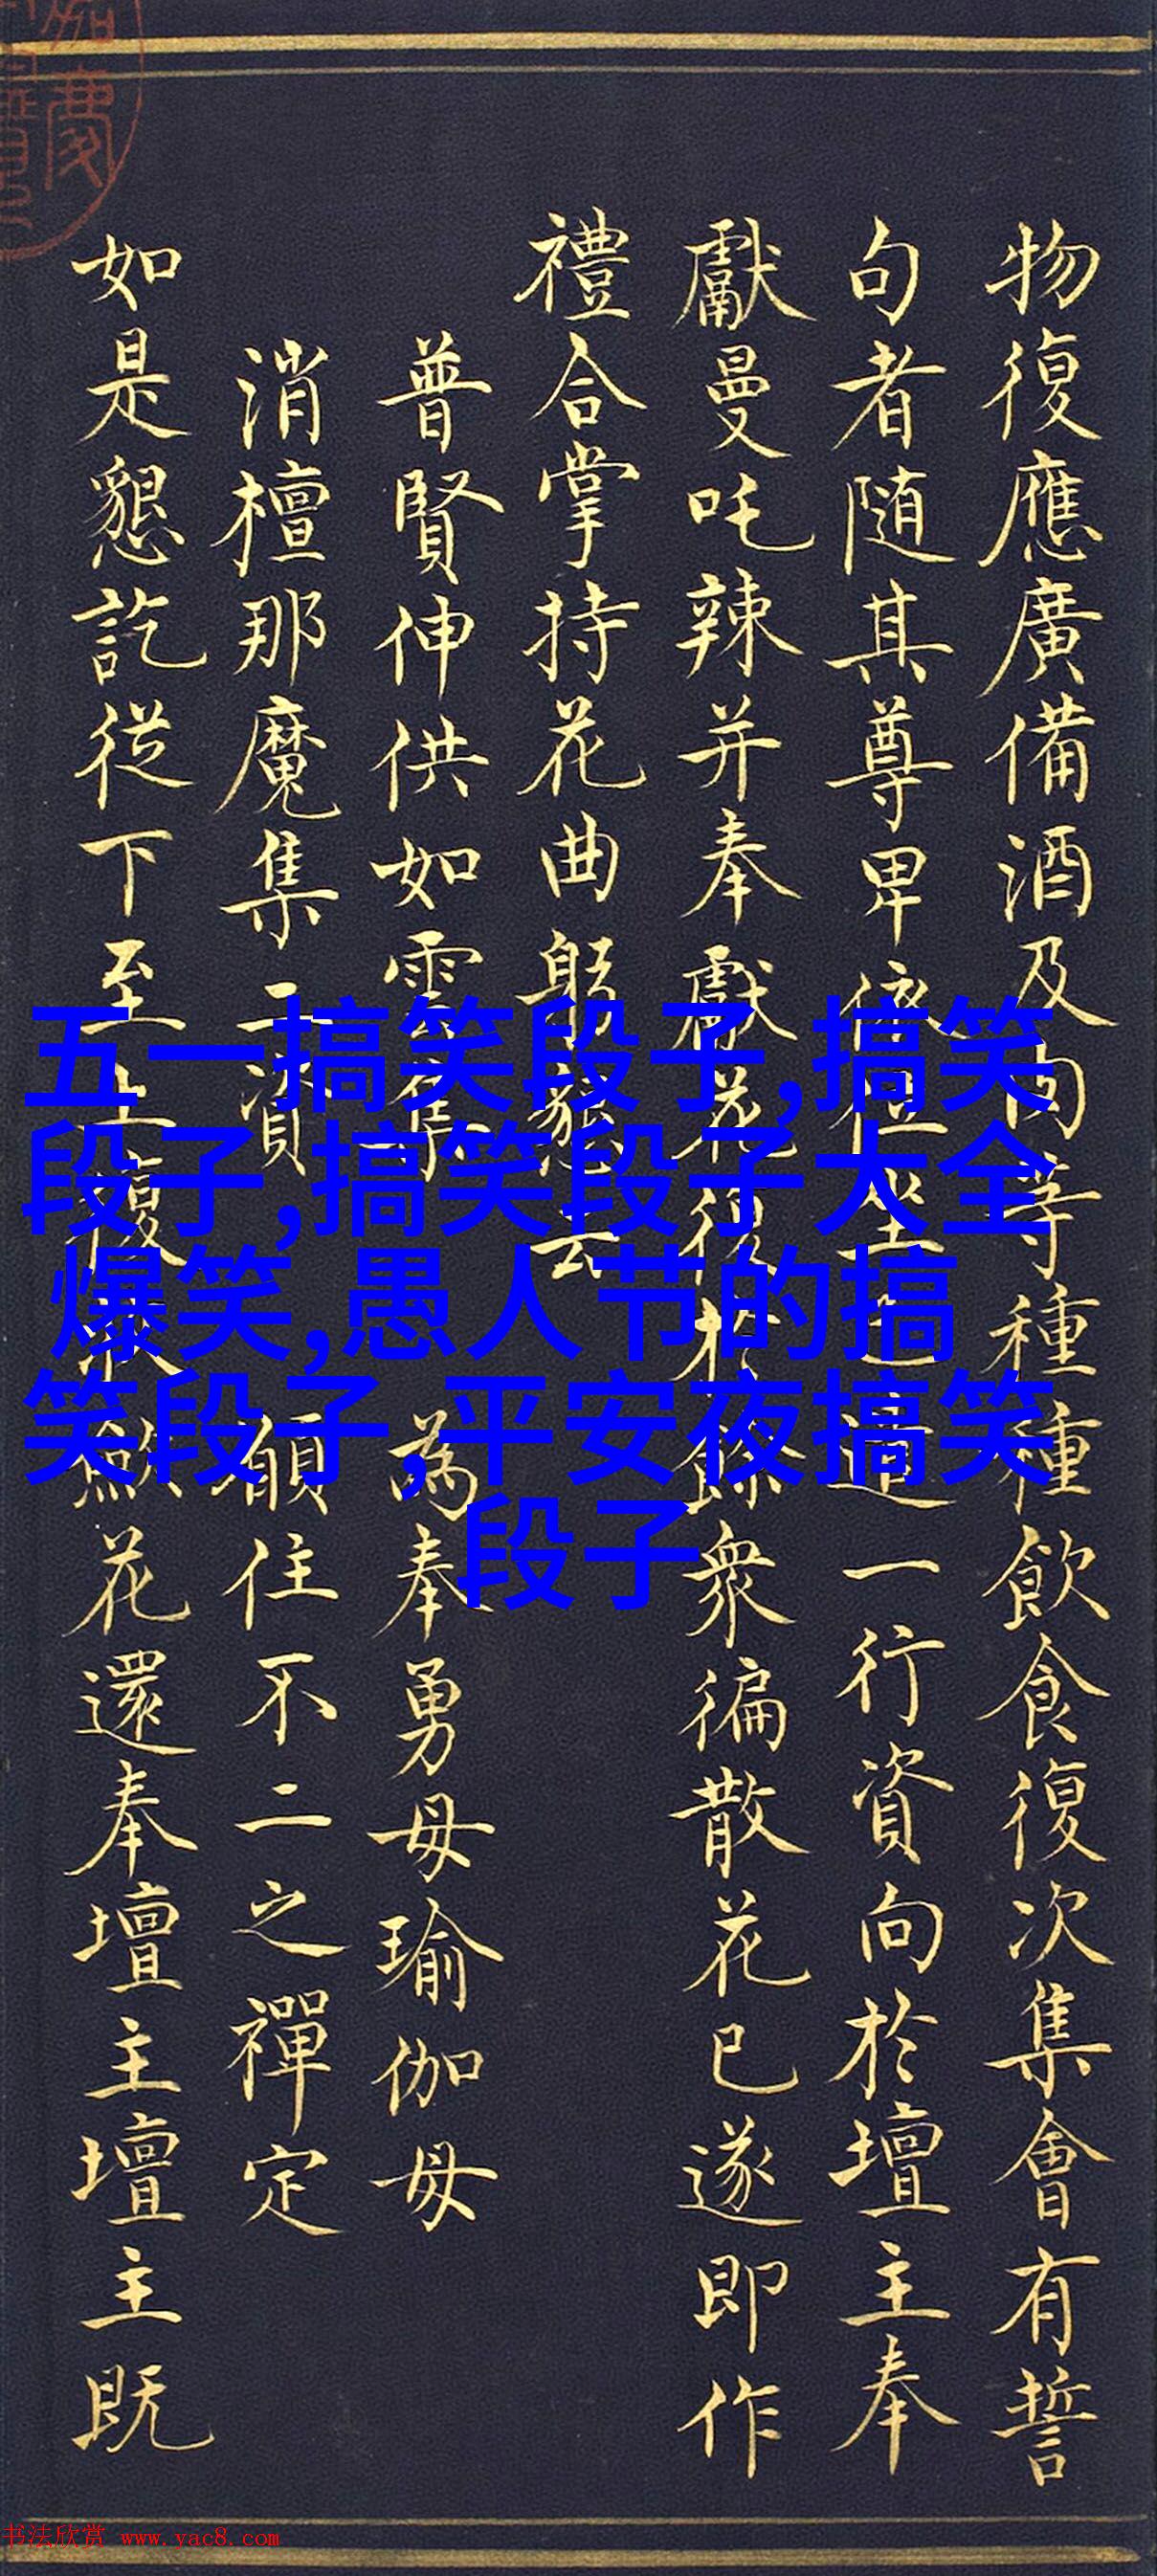 物復應廣備酒及肉等種種飲食復次集會有誓
句者随其尊卑依位坐已遣一行資向於壇主奉
獻曼吒辣并奉獻花復於餘衆徧散花已遂即作
禮合掌持花曲躬態去
普賢伸供如雲集 為奉勇母瑜伽母
消檀那魔集二資 願住不二之禪定
如是懇訖從下至上復來歛花還奉壇主壇主既
五一搞笑段子,搞笑
段子,搞笑段子大全
爆笑,愚人节的搞
笑段子,平安夜搞笑
段子
书法欣赏 www.yac8.com